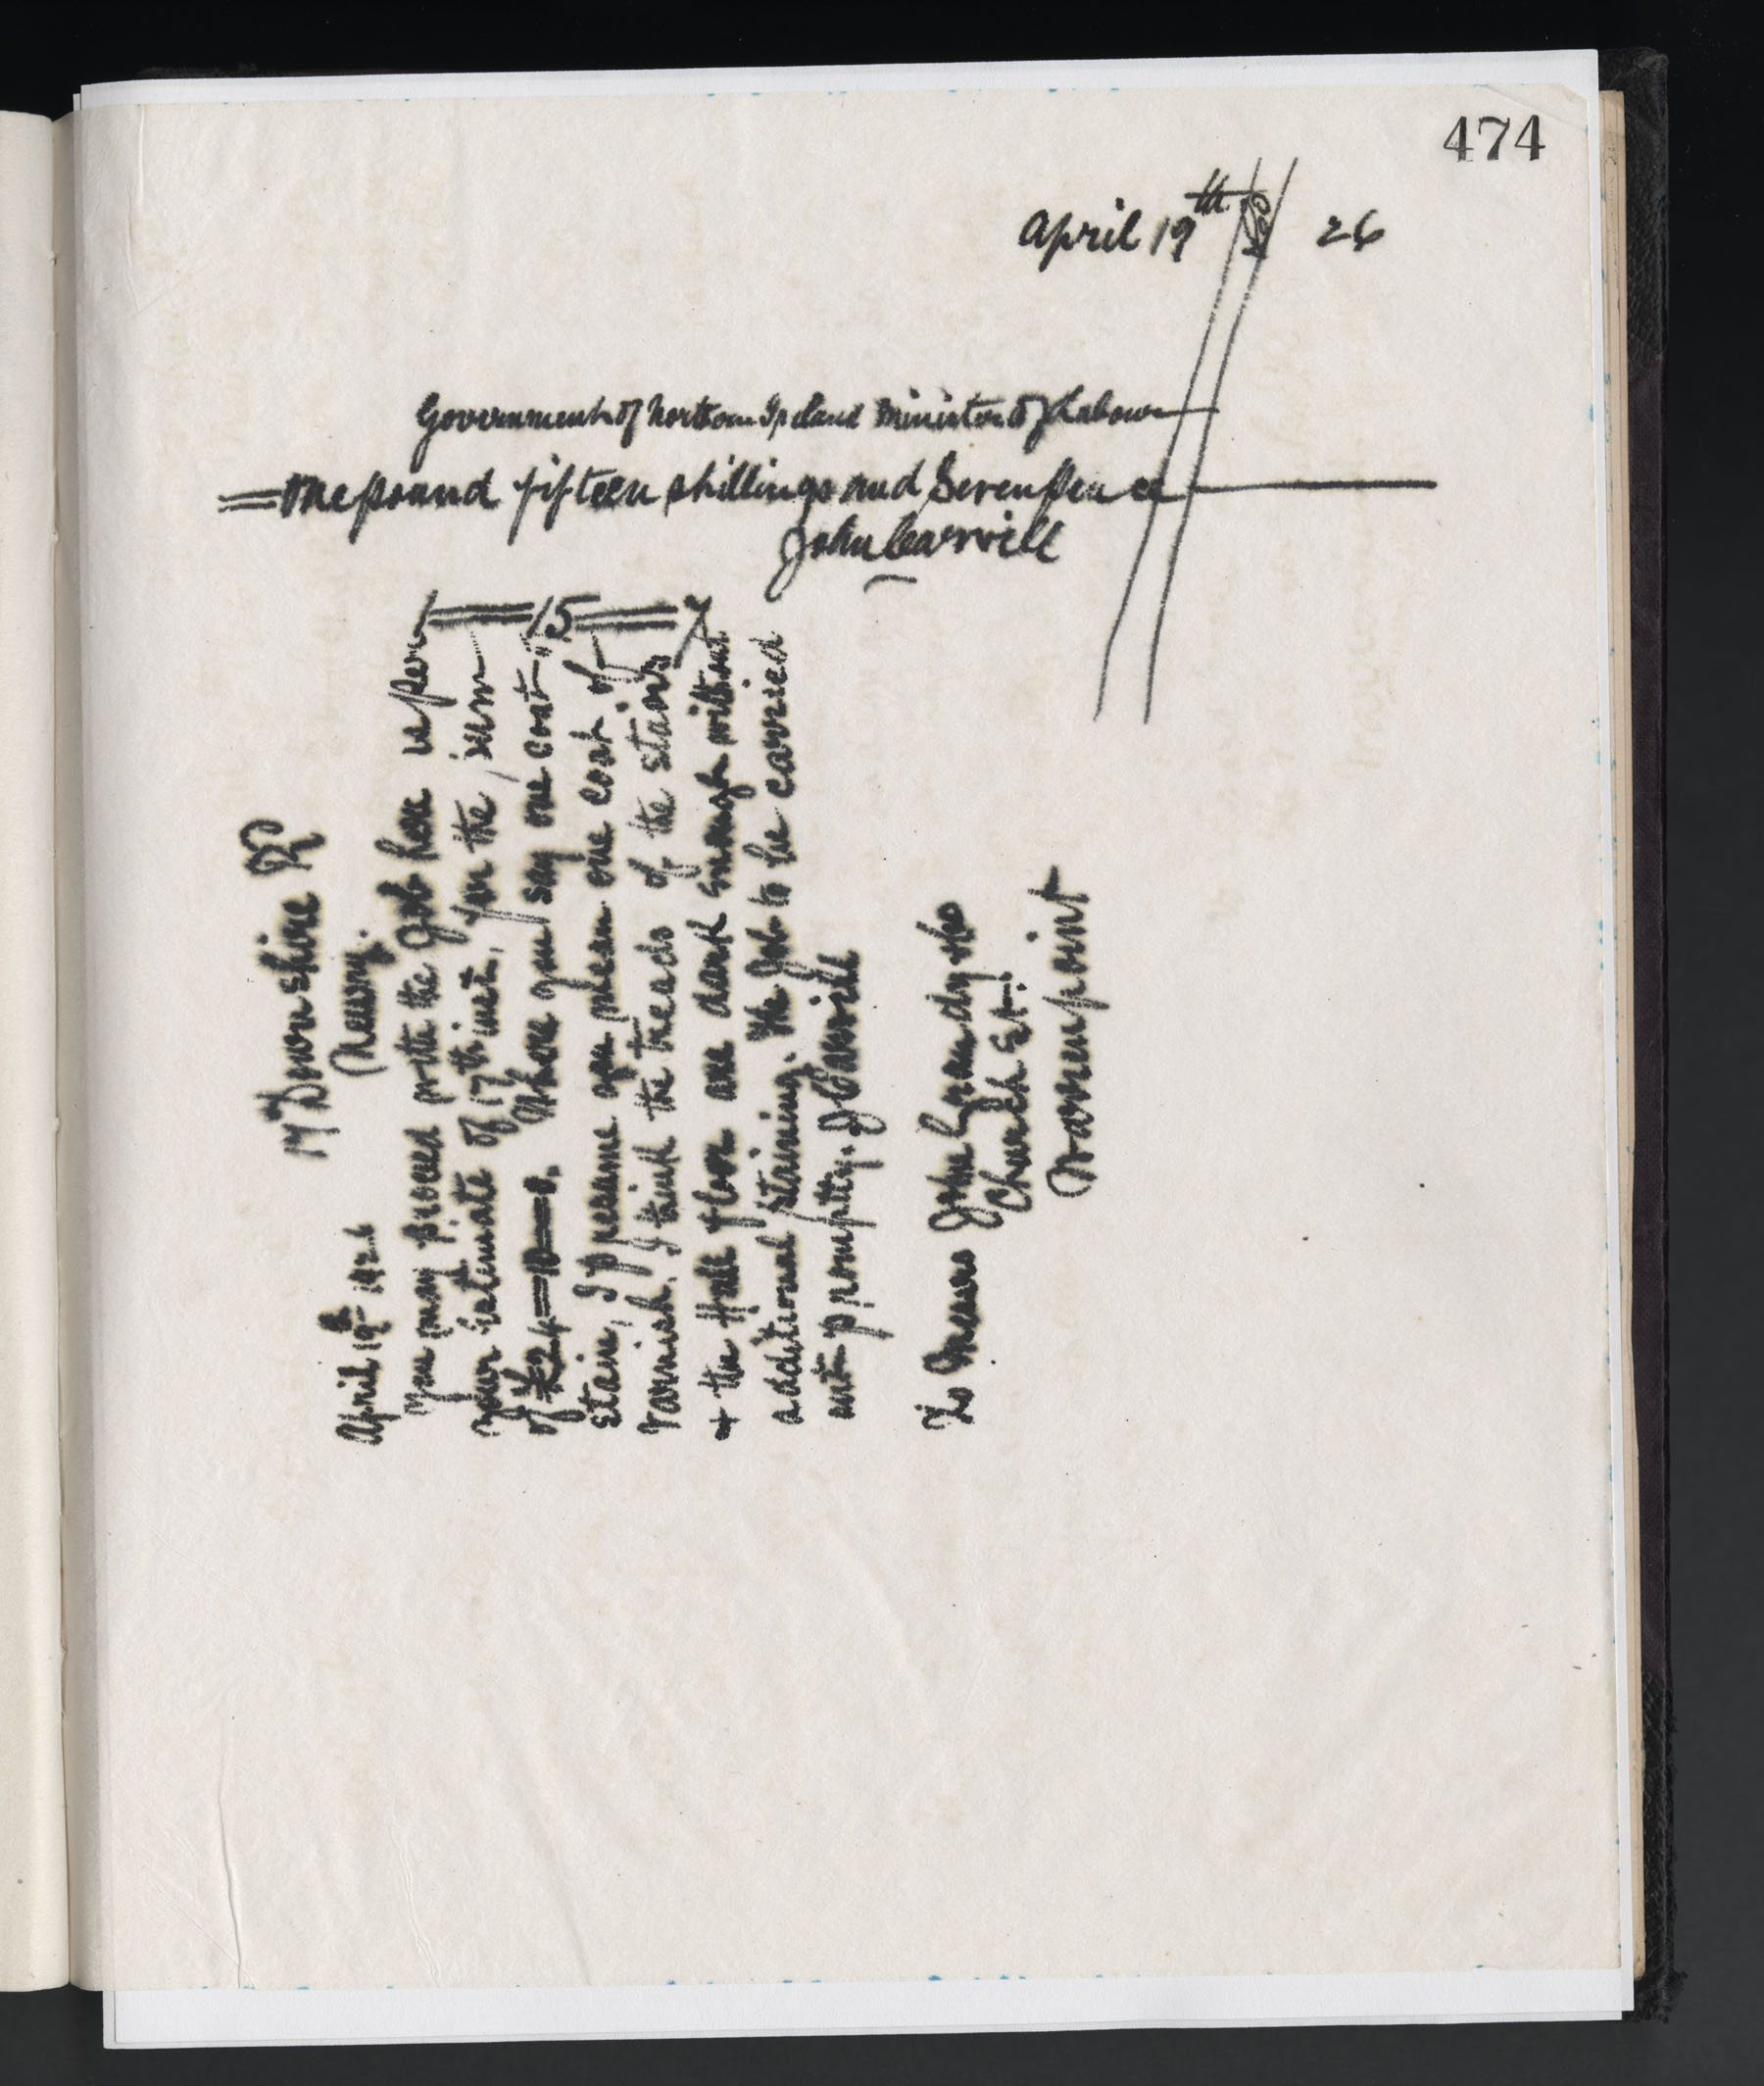 474
April 19th 26
Government of Northern Ireland Minister of Labour
One pound fifteen shillings and Seven pence
John Carvill
1 = 15 = 7
17 Downshire Rd
Newry.
April 19th 1926
You may proceed with the job here as per
your Estimate of 17th inst, for the sum
of £24=10=0. Where you say one coat
stain, I presume you mean one coat of
varnish. I think the treads of the stairs
+ the Hall floor are dark enough without
additional staining. The Job to be carried
out promptly. J Carvill
To Messrs John Grandy &
Church St.
Warrenpoint